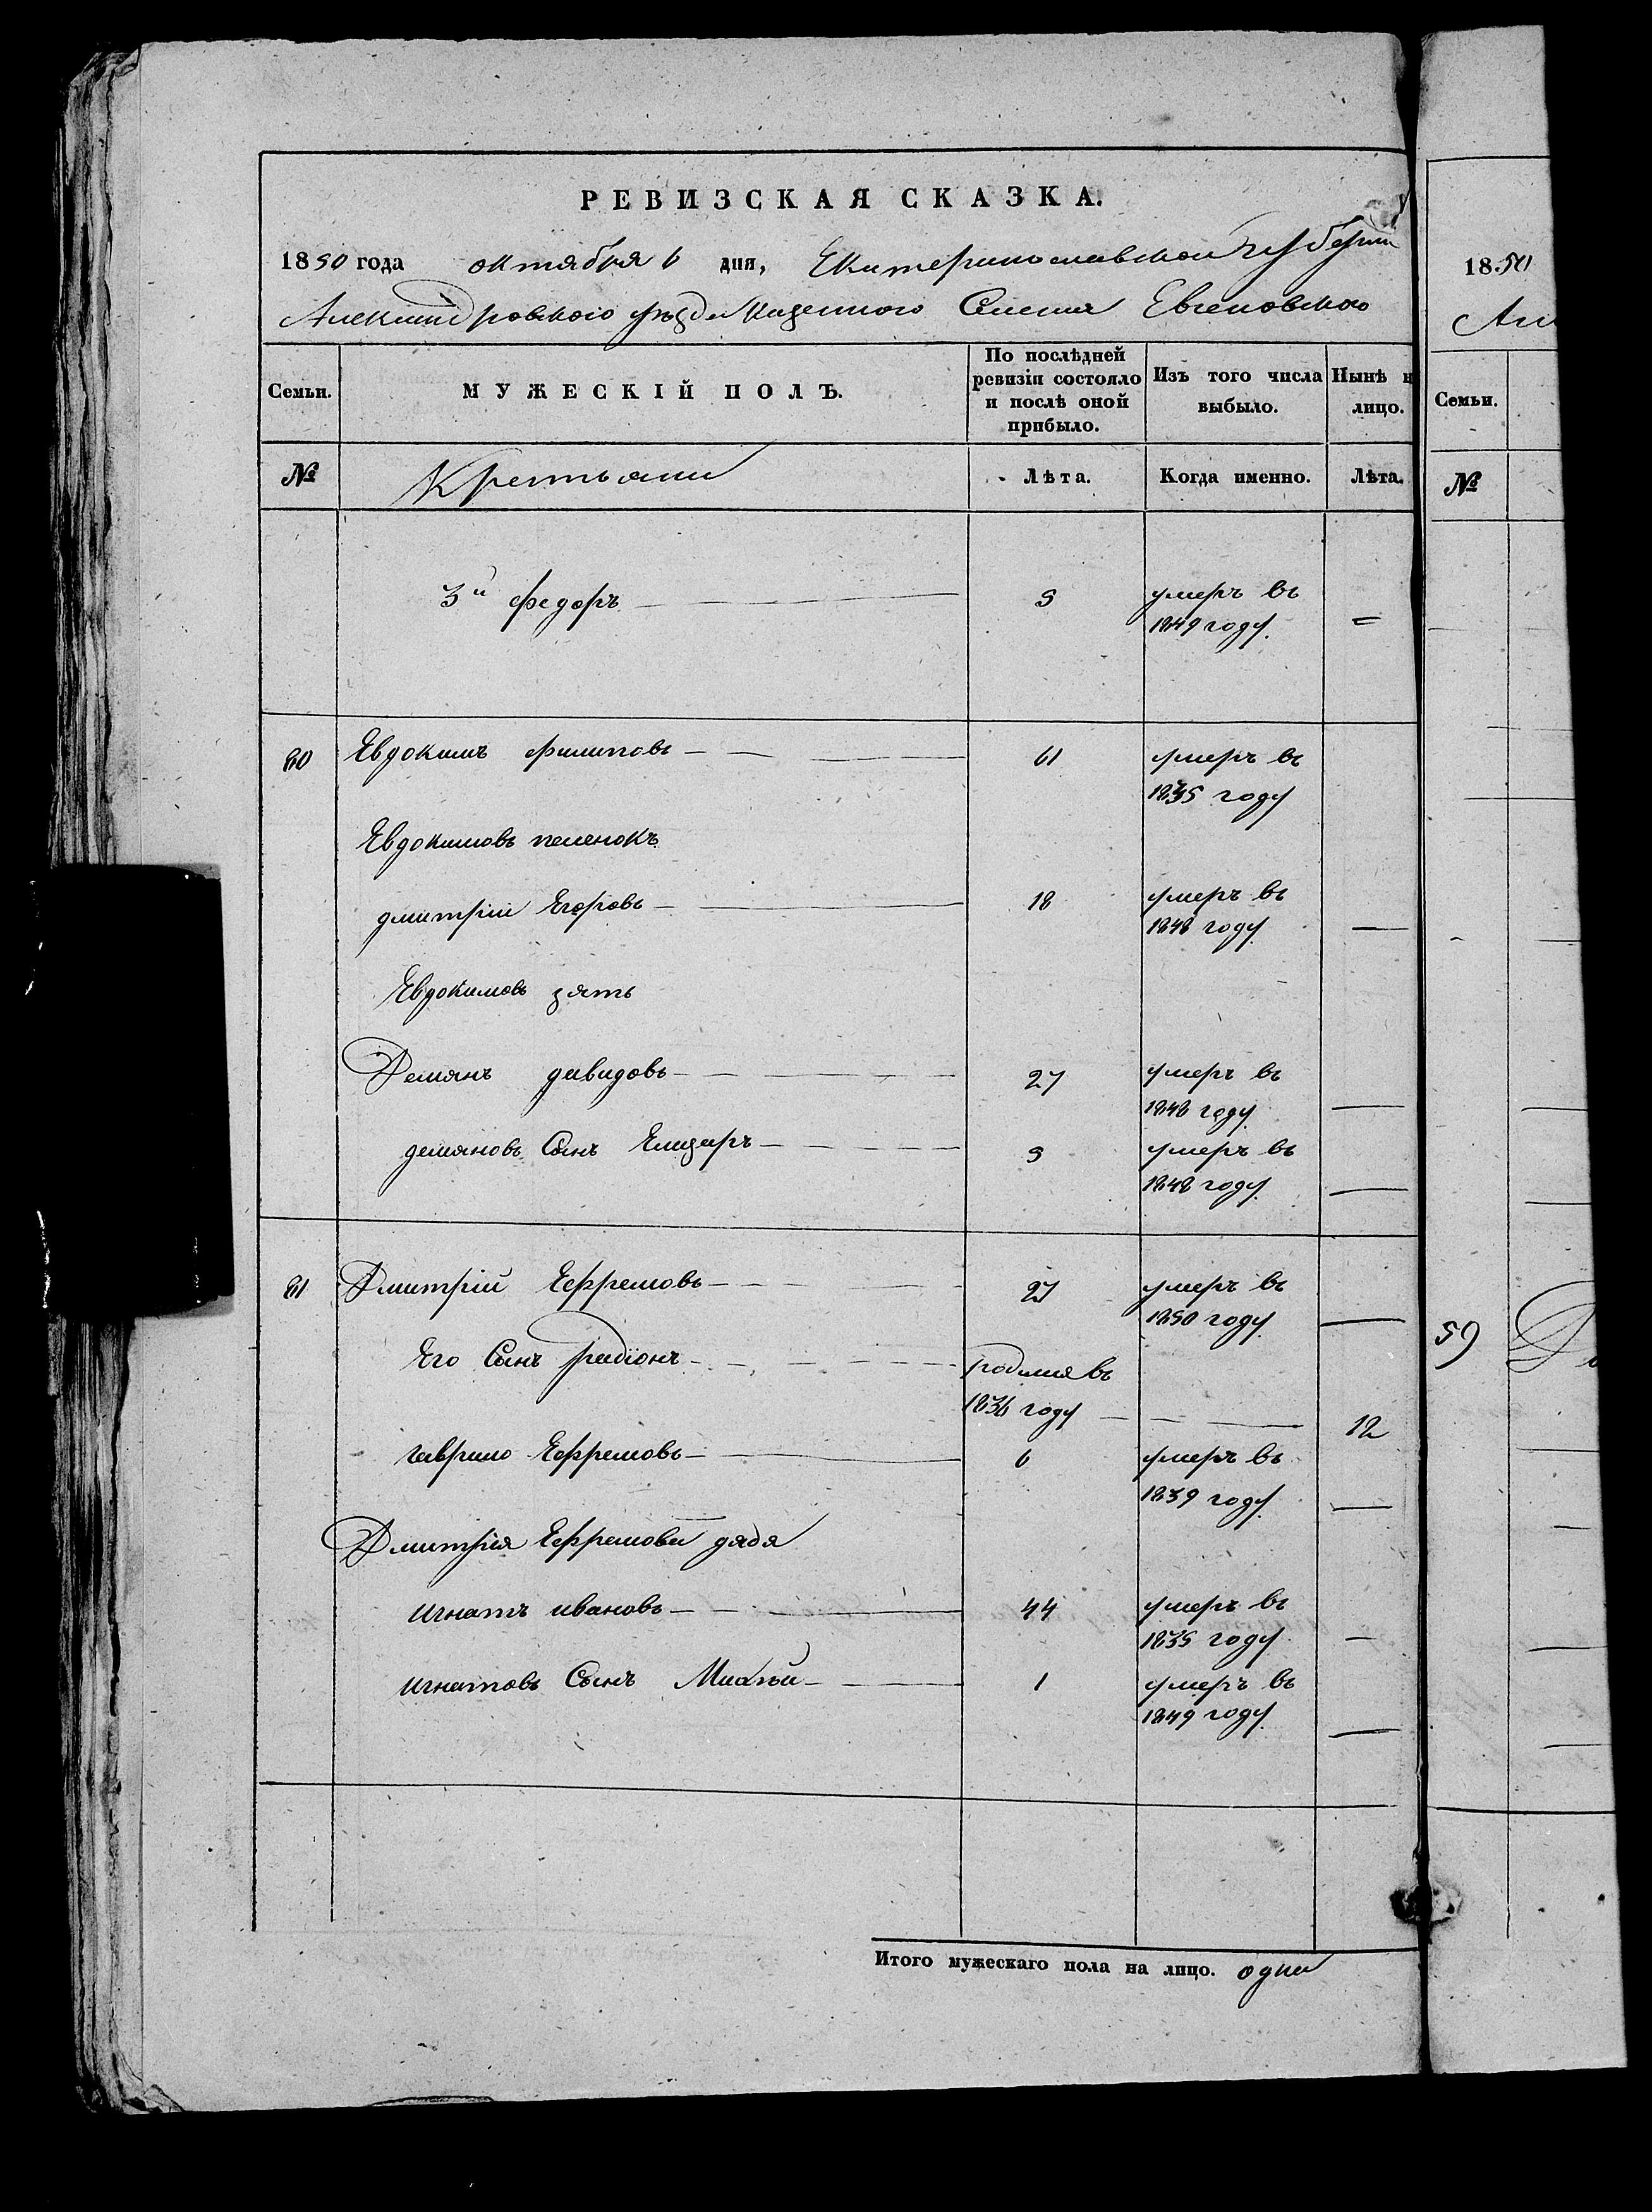 РЕВИЗСКАЯ СКАЗКА.
1850 года октября 6 дня, Екатеринославской губернии
Александровского уезда казенного Селения Евгеновского
Семьи. МУЖЕСКІЙ ПОЛЪ. По послѣдней ревизіи состояло и послѣ оной прибыло. Изъ того числа выбыло. Нынѣ н лицо.
№ Крестьяни Лѣта. Когда именно. Лѣта.
3й федоръ 9 умеръ въ
1849 году.
60 Евдокимъ филиповъ 61 умеръ въ
1835 году
Евдокимовъ племенокъ
дмитрій Егоровъ 18 умеръ въ
1848 году
Евдокимовъ зять
Демянъ давидовъ 27 умеръ въ
1848 году
демяновъ Сынъ Елизаръ 9 умеръ въ
1848 году
61 Дмитрій Ефремовъ 27 умеръ въ
1850 году
Его Сынъ радіонъ родился въ
1836 году 12
гаврило Ефремовъ 6 умеръ въ
1839 году
Дмитрія Ефремова дядя
игнатъ ивановъ 44 умеръ въ
1835 году
игнатовъ Сынъ 1 умеръ въ
1849 году
Итого мужескаго пола на лицо. одна
1850
Ал
Семьи.
№
59